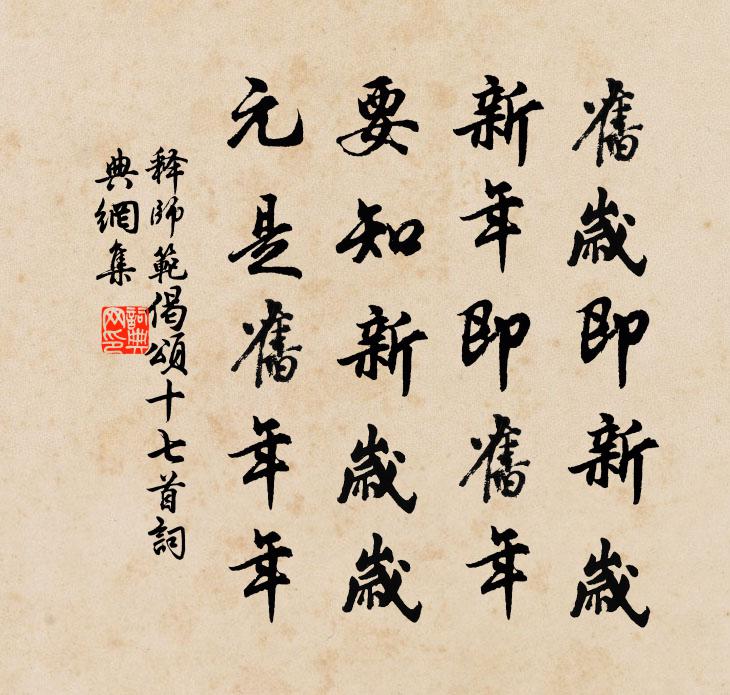 舊歲即新歲
新年即舊年
要知新歲歲
元是舊年年
释師範偈頌十七首詞
典網集
詞典
网印